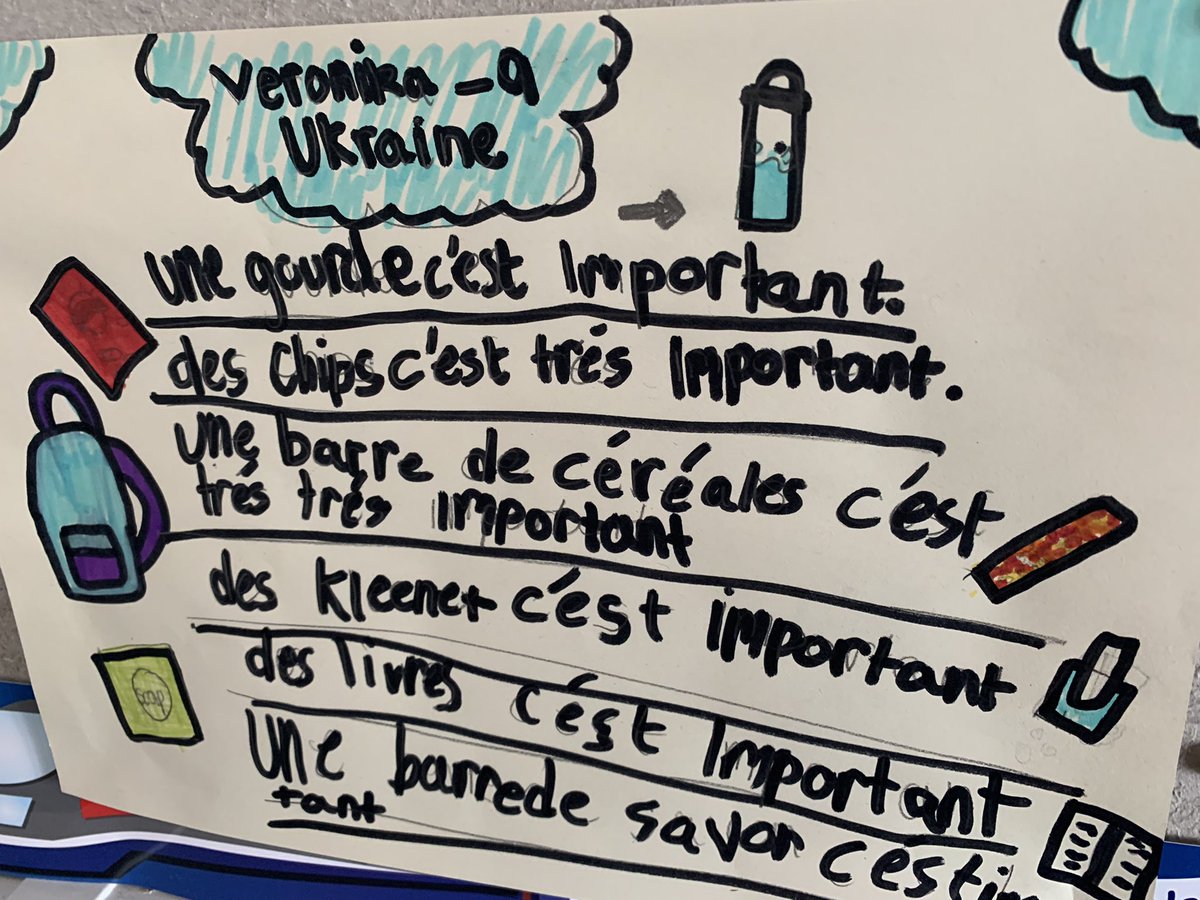 Veronika - 9
Ukraine
une gourde c'est important.
des chips c'est trés important.
une barre de céréales c'ést
trés trés important
des kleenex c'ést important
des livres c'ést important
Une barrede savor c'éstim
tant
soap